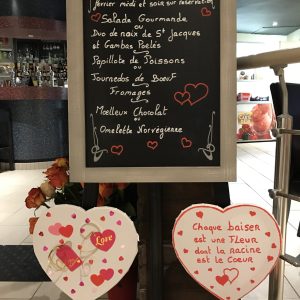 février midi et soir sur réservation
Salade Gourmande
ou
Duo de noix de St Jacques
et Gambas Poêlés
Papillote de Poissons
ou
Tournedos de Boeuf
Fromages
Moelleux Chocolat
ou
Omelette Norvégienne
Love
Chaque baiser
est une Fleur
dont la racine
est le Coeur